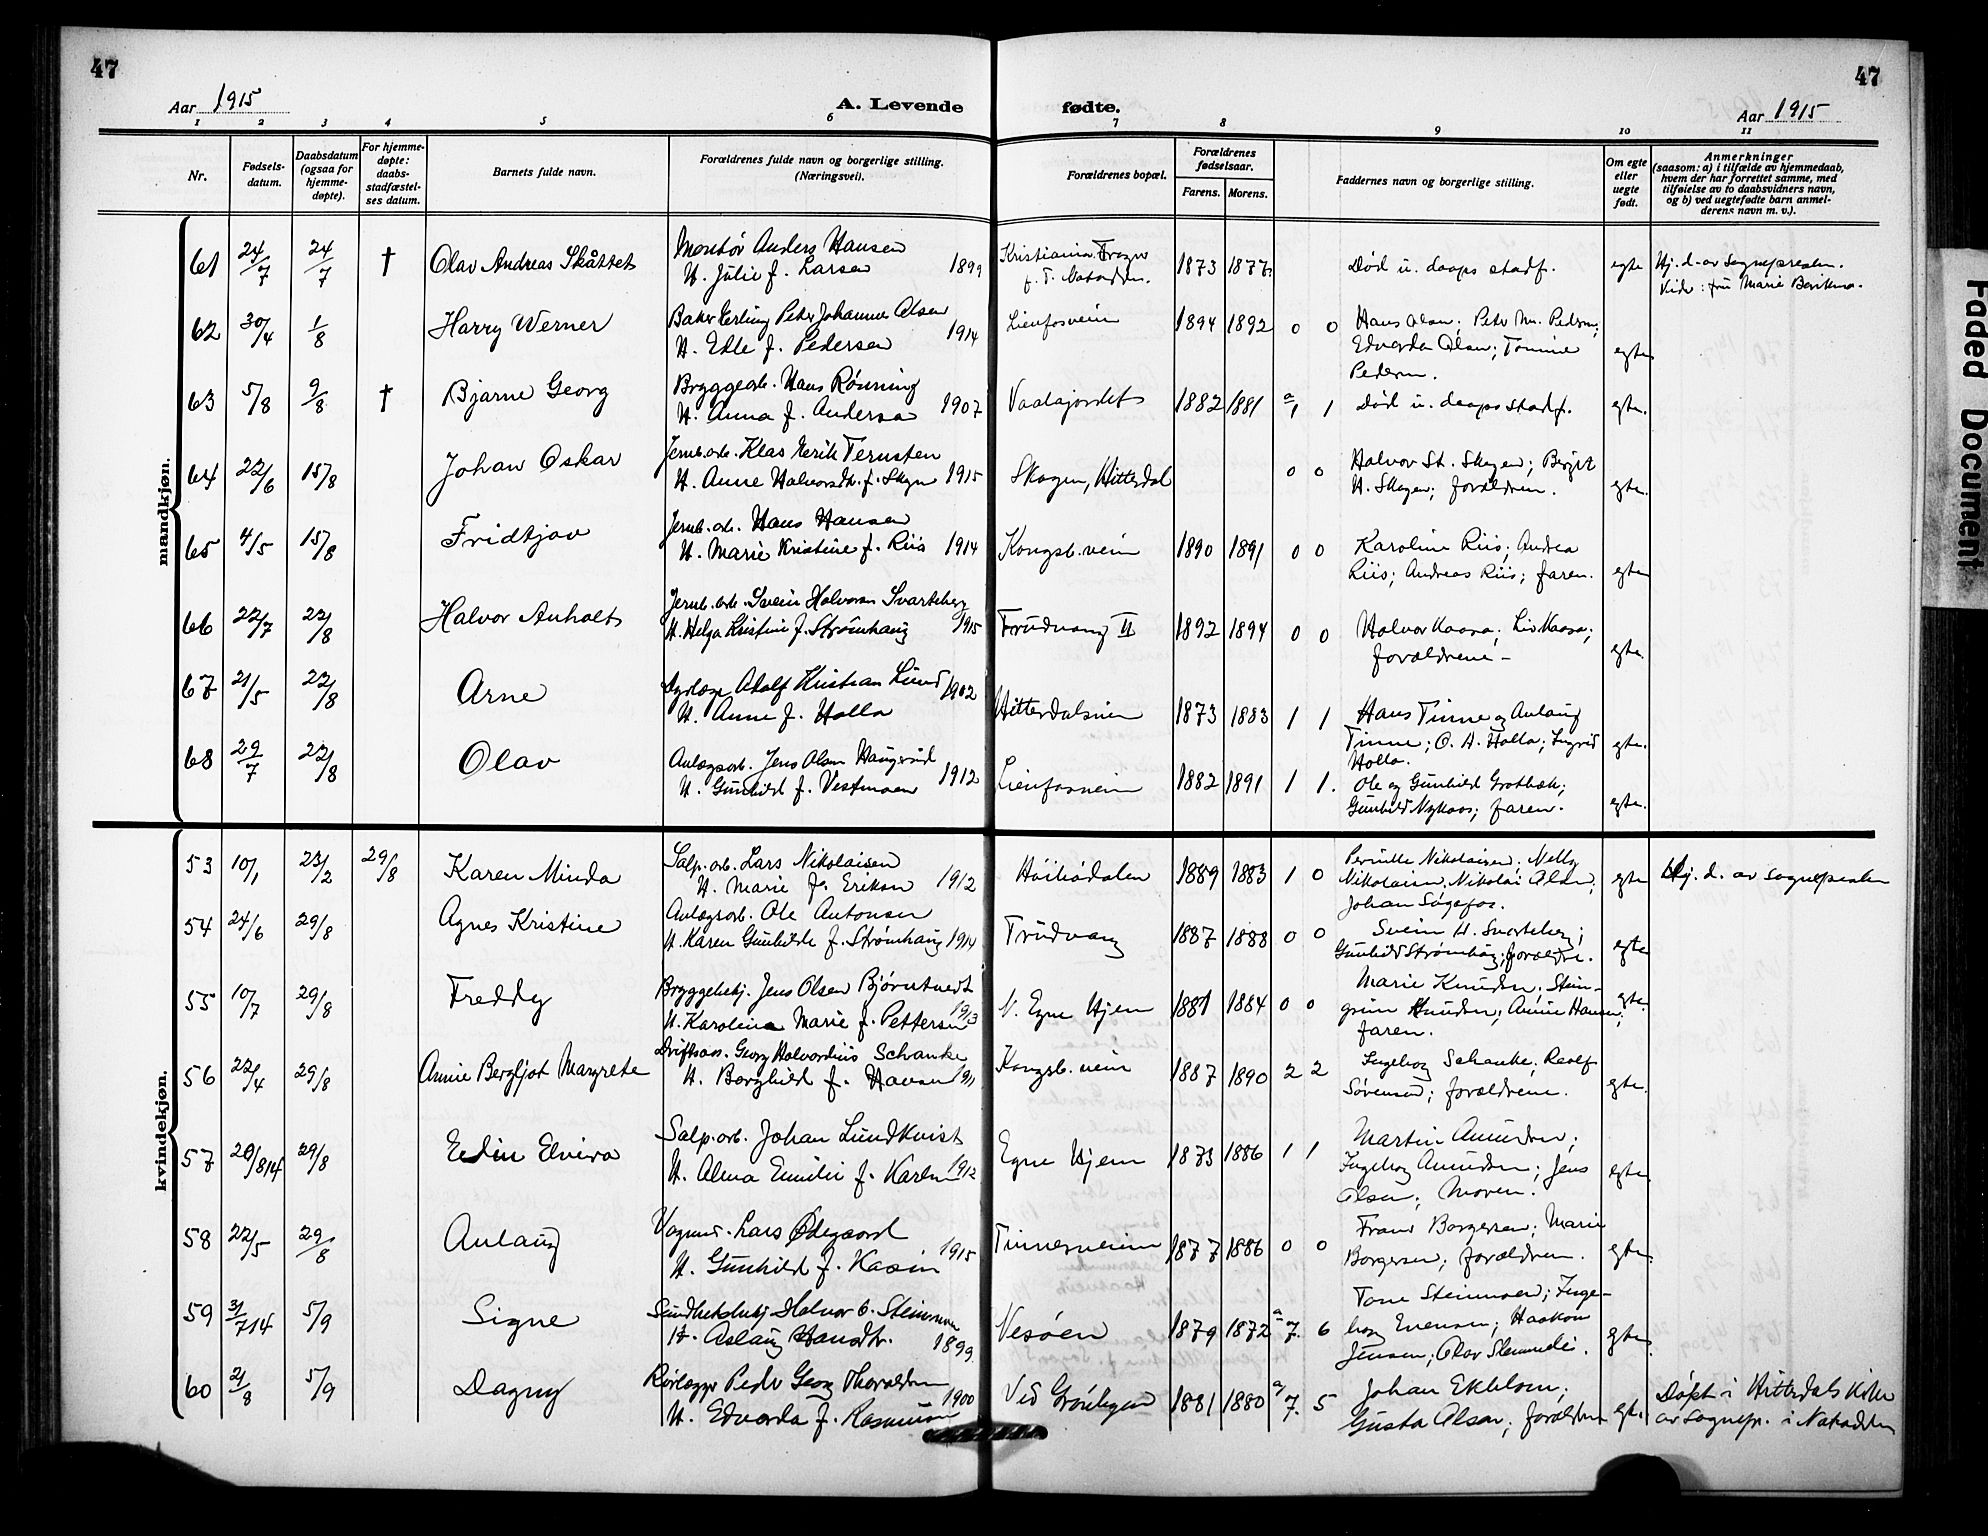 47
47
Aar 1915
A. Levende
fødte.
Aar 1915
1 2 3 4 5 6 7 8 9 10 11
Nr.
Fødsels-
datum.
Daabsdatum
(ogsaa for
hjemme-
døpte).
For hjemme-
døpte:
daabs-
stadfæstel-
ses datum.
Barnets fulde navn.
Forældrenes fulde navn og borgerlige stilling.
(Næringsvei).
Forældrenes bopæl.
Forældrenes
fødselsaar.
Farens. Morens.
Faddernes navn og borgerlige stilling.
Om egte
eller
uegte
født.
Anmerkninger
(saasom: a) i tilfælde av hjemmedaab,
hvem der har forrettet samme, med
tilføielse av to daabsvidners navn,
og b) ved uegtefødte barn anmel-
derens navn m. v.).
mandkjøn.
61 24/7 24/7 † Olav Andreas Skåttet
Montør Anders Hansen
H. Julie f. Larsen 1899
Kristiania
1873 1877
Død u. daaps stadf.
egte
Hj. d. av sognepresten.
62 30/4 1/8 Harry Werner
Baker Erling Peter Johannes Olsen
H. Edle f. Pedersen 1914
Lienfosveien 1894 1892 0 0
Hans Olsen; Petr M. Pedersen;
Edvarda Olsen; Tomine
Pedersen.
egte
63 5/8 9/8 † Bjarne Georg
Bryggearb. Hans Rønning
H. Anna f. Andersen 1907
Vaalajordet 1882 1881 a/1 1 Død u. daaps stadf. egte.
64 22/6 15/8 Johan Oskar
Jernb. arb. Klas Henrik Fernsten
H. Anne Halvorsdtr. f. Skogen 1915
Skogen, Hitterdal 0 0
Halvor St. Skogen; Bergit
H. Skogen; forældrene.
egte.
65 4/5 15/8 Fridtjov
Jernb. arb. Hans Hansen
H. Marie Kristine f. Riis 1914
Kongsb. veien 1890 1891 0 0
Karoline Riis; Andrea
Riis; Andreas Riis; faren.
egte
66 22/7 22/8 Halvor Anholt
Jernb. arb. Svein Halvorsen Svarteberg
H. Helga Kristine f. Strømhaug 1915
Trudvang II 1892 1894 0 0
Halvor Kaasa; Liv Kaasa;
forældrene -
egte.
67 21/5 22/8 Arne
Dyrlæge Adolf Kristian Lund 1902
H. Anne f. Holla
Hitterdalsveien 1873 1883 1 1
Hans Tinne og Aslaug
Tinne; O. H. Holla; Ingrid
Holla.
egte.
68 29/7 22/8 Olav
Anlægsarb. Jens Olsen Haugerud
H. Gunhild f. Vestmoen 1912
Lienfosveien 1882 1891 1 1.
Ole og Gunhild Grotbæk;
Gunhild Nykaas; faren.
egte.
kvindekjøn.
53 10/1 23/2 29/8 Karen Minda
Salp. arb. Lars Nikolaisen
H. Marie f. Eriksen 1912
Høibødalen 1889 1883 1 0
Pernille Nikolaisen; Nelly
Nikolaisen, Nikolai Olsen;
Johan Sagafos.
egte
Hj. d. av sognepresten
54 24/6 29/8 Agnes Kristine
Anlægsarb. Ole Antonsen
H. Karen Gunhilde f. Strømhaug 1914
Trudvang 1887 1888 0 0
Svein H. Svarteberg;
Gunhild Strømhaug; forældre.
egte
55 10/7 29/8 Freddy
Bryggebetj. Jens Olsen Bjørntvedt
H. Karoline Marie f. Pettersen 1913
N. Egne Hjem 1881 1884 0 0
Marie Knudsen; Stein-
grim Knudsen; Annie Hansen;
faren.
egte.
56 22/4 29/8 Annie Bergljot Margrete
Driftsas. Georg Halvordius Schanke
H. Borghild f. Hansen 1911
Kongsb. veien 1887 1890 2 2
Ingeborg Schanke; Raolf
Sørensen; forældrene.
egte.
57 20/8 14 29/8 Edin Elvira
Salp. arb. Johan Lundkvist
H. Alma Emilie f. Karlsen 1912
Egne Hjem 1873 1886 1 1
Martin Amundsen;
Ingeborg Amundsen; Jens
Olsen; Moren.
egte.
58 22/5 29/8 Aslaug
Vognm. Lars Ødegaard
H. Gunhild f. Kasin 1915
Tinnesveien 1877 1886 0 0
Frans Borgersen; Marie
Borgersen; forældrene.
egte.
59 31/7 14 5/9 Signe
Sundhetsbetj. Halvor O. Steinmoen
H. Aslaug Hansdtr. 1899.
Vesøen 1879 1872 a/7. 6
Tone Steinmoen; Inge-
borg Evensen; Haakon
Jensen; Olav Slemmelie.
egte.
60 21/8 5/9 Dagny
Rørlægger Peder Georg Thoraldsen
H. Edvarda f. Rasmussen 1900
Ved Grønbyen 1881 1880 a/7. 5
Johan Ekblom;
Gusta Olsen; forældrene
egte.
Døpt i Hitterdals Kirke
av sognepr. i Notodden
Faded Document